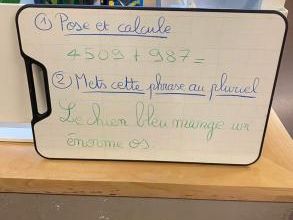 ① Pose et calcule
4509 + 987 =
② Mets cette phrase au pluriel
Le chien bleu mange un
énorme os